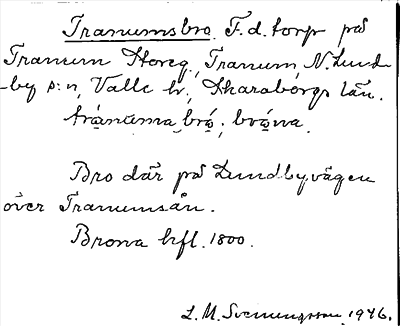 Tranumsbro. F. d. torp på
Tranum Storeg, Tranum, N. Lund-
-by s:n, Valle hd, Skaraborgs län.
tránuma brǫ́; brǫ́na.
Bro där på Lundbyvägen
över Tranumsån.
Brona bfl. 1800.
L. M. Svenungsson 1946.